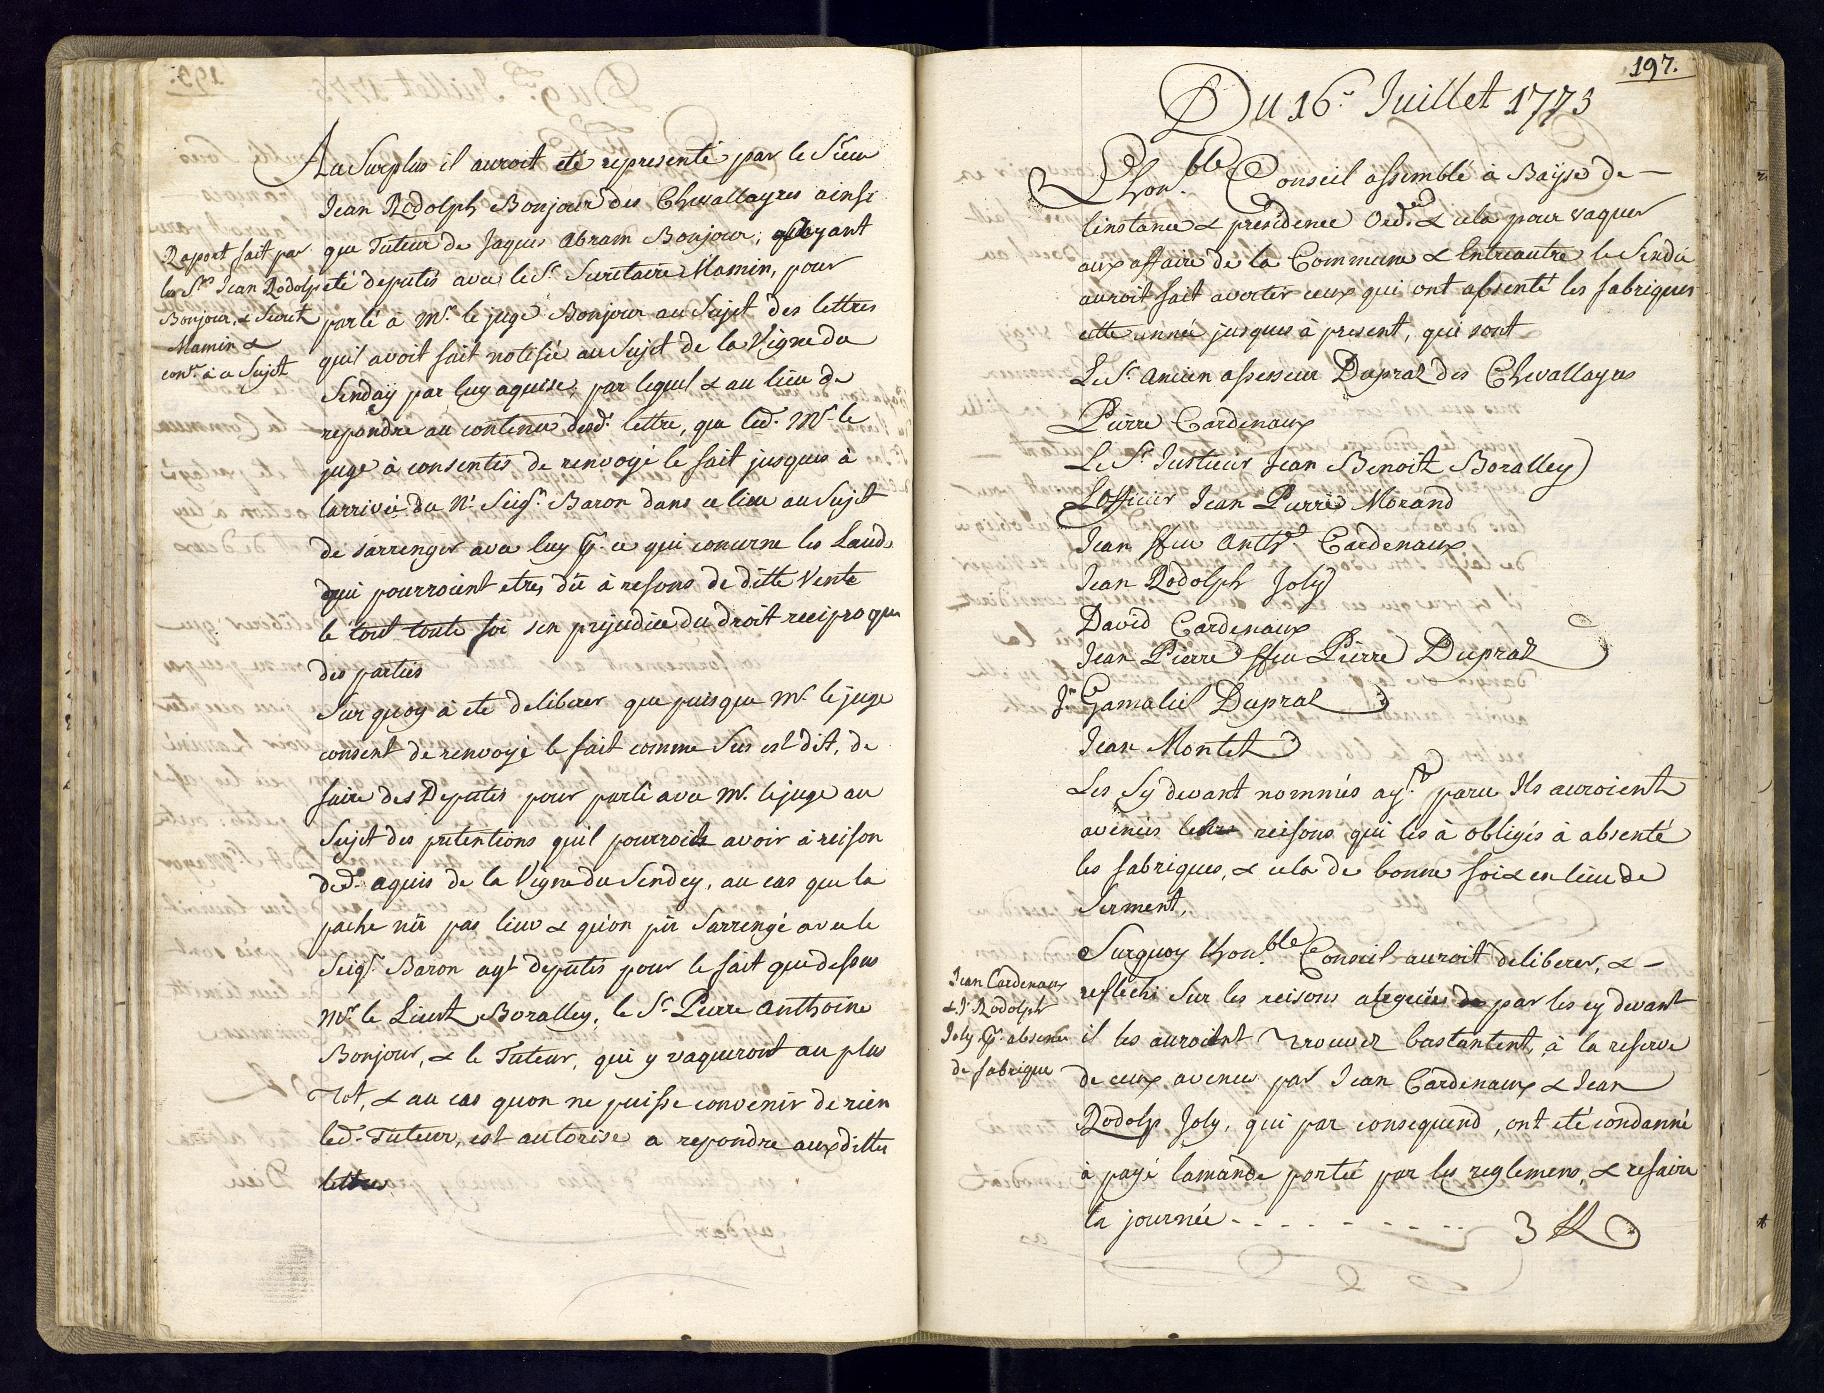 Au Surplus il auroit eté representé par le Sieur
Jean Rodolph Bonjour des Chevallayres ainsi
que Tuteur de Jaques Abram Bonjour, qu'ayant
Raport fait par
les Srs Jean Rodolph
Bonjour, & Secret.
Mamin &
conr. à ce Sujet
eté deputés avec le Sr. Secretaire Mamin, pour
parlé à Mr. le juge Bonjour au Sujet des lettres
quil avoit fait notifié au Sujet de la Vigne du
Sendaÿ par luy aquise, par lequel & au lieu de
repondre au contenu desd. lettre, que led. Mr. le
juge à consentis de renvoyé le fait jusques à
larrivée du N. Seigr. Baron dans ce lieu au Sujet
de sarrenger avec luy pr. ce qui concerne les Lauds
qui pourroient etres dû à resons de ditte Vente
le tout toute foi sen prejudice du droit reciproque
des parties
Sur quoy à eté deliberer que puisque Mr. le juge
consent de renvoyé le fait comme Sus est dit, de
faire des Deputés pour parlé avec Mr. le juge au
Sujet des pretentions quil pourroit avoir à reison
ded. aquis de la Vigne du Sendey, au cas que la
pache nût pas lieu & qu'on pût Sarrengé avec le
Seigr. Baron ayt deputés pour le fait que dessus
Mr. le Lieut. Boralley, le Sr. Pierre Anthoine
Bonjour, & le Tuteur, qui y vaqueront au plus
Tot, & au cas quon ne puisse convenir de rien
led. Tuteur, est autorise a repondre aux dittes
lettres
197.
Du 16e. Juillet 1773
L'hon.ble Conseil assemblé à Baÿse de
linstance & presidence Ord.re & cela pour vaquer
aux affaire de la Commune & Entreautre le Sendic
auroit fait avertir ceux qui ont absenté les fabriques
cette année jusques à present, qui sont
Le Sr. Ancien assesseur Dupraz des Chevallayres
Pierre Cardenaux
Le Sr. Justicier Jean Benoit Boralley
L'officier Jean Pierre Morand
Jean ffeu Anthe. Cardenaux
Jean Rodolph Joly
David Cardenaux
Jean Pierre ffeu Pierre Dupraz
Jn. Gamaliel Dupraz
Jean Montet
Les Sy devant nommés ayt. paru Ils auroient
avenués leurs reisons qui les à obligés à absenté
les fabriques, & cela de bonne foi & en lieu de
Serment.
Surquoy l'hon.ble Conseil auroit deliberer, &
Jean Cardenaux
& J. Rodolph
Joly pr. absence
de fabrique
reflechi Sur les reisons aleguées par les cy devant
il les auroient Trouvez bastantent, à la reserve
de ceux avenue par Jean Cardenaux & Jean
Rodolp Joly, qui par consequend, ont eté condanné
à payé lamande portée par les reglemens, & refaire
la journée - - - - - - - - - 3 ff